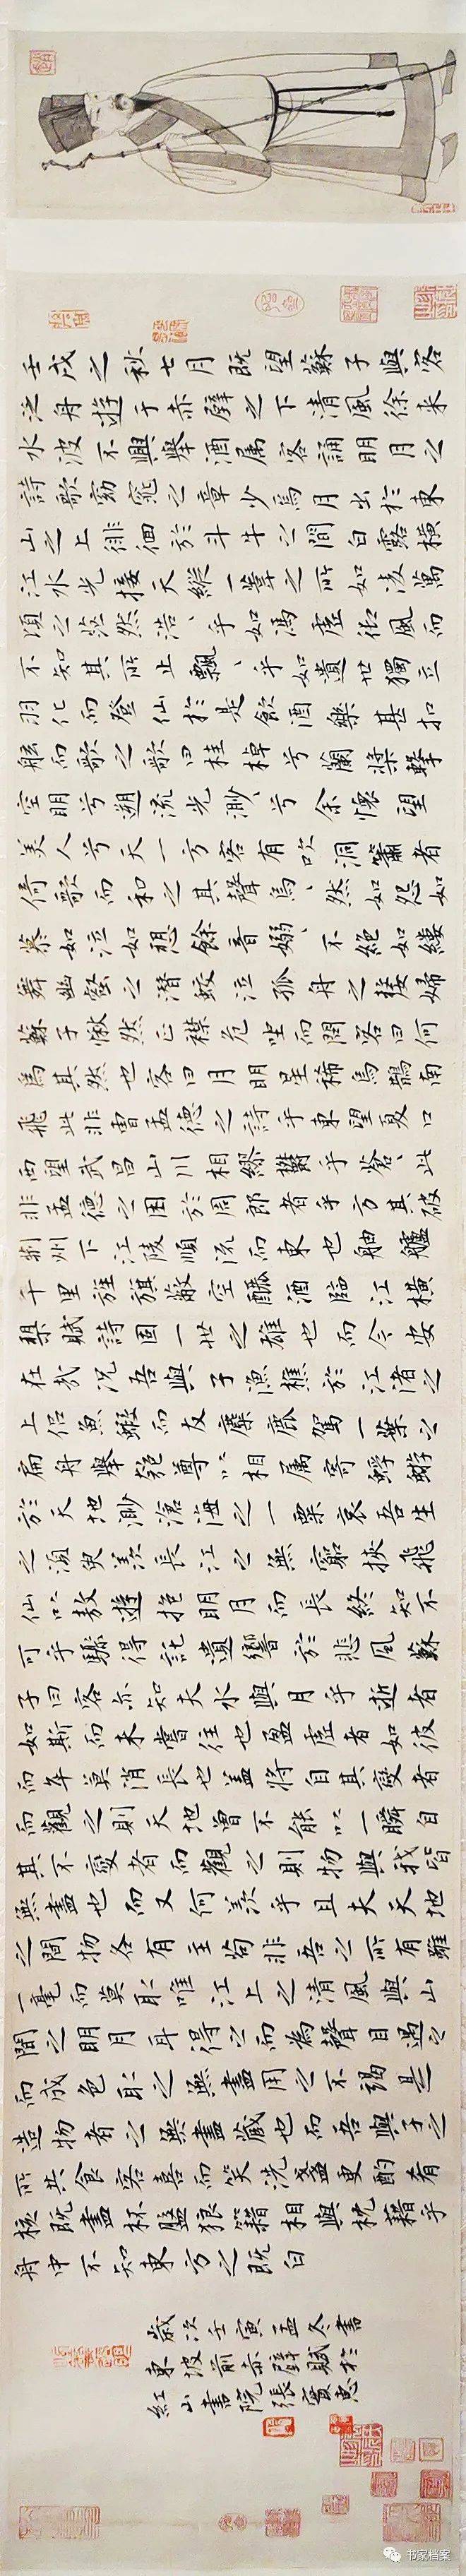 壬戌之秋七月既望蘇子與客
泛舟遊于赤壁之下清風徐来
水波不興舉酒属客誦明月之
詩歌窈窕之章少焉月出於東
山之上徘徊於斗牛之間白露橫
江水光接天縱一葦之所如凌萬
頃之茫然浩、乎如馮虛御風而
不知其所止飄、乎如遺世獨立
羽化而登仙於是飲酒樂甚扣
舷而歌之歌曰桂棹兮蘭槳擊
空明兮溯流光渺、兮余懷望
美人兮天一方客有吹洞簫者
倚歌而和之其聲烏、然如怨如
慕如泣如愬餘音嫋、不絕如縷
舞幽壑之潛蛟泣孤舟之嫠婦
蘇子愀然正襟危坐而問客曰何
為其然也客曰月明星稀烏鵲南
飛此非曹孟德之詩乎東望夏口
西望武昌山川相繆鬱乎蒼、此
非孟德之困於周郎者乎方其破
荊州下江陵順流而東也舳艫
千里旌旗蔽空釃酒臨江橫
槊賦詩固一世之雄也而今安
在哉況吾與子漁樵於江渚之
上侶魚蝦而友麋鹿駕一葉之
扁舟舉匏尊以相属寄蜉蝣
於天地渺滄海之一粟哀吾生
之須臾羨長江之無窮挾飛
仙以敖遊抱明月而長終知不
可乎驟得託遺響於悲風蘇
子曰客亦知夫水與月乎逝者
如斯而未嘗往也盈虛者如彼
而卒莫消長也蓋將自其變者
而觀之則天地曾不能以一瞬自
其不變者而觀之則物與我皆
無盡也而又何羨乎且夫天地
之間物各有主苟非吾之所有雖
一毫而莫取唯江上之清風與山
間之明月耳得之而為聲目遇之
而成色取之無盡用之不竭是
造物者之無盡藏也而吾與子之
所共食客喜而笑洗盞更酌肴
核既盡杯盤狼籍相與枕藉乎
舟中不知東方之既白
歲次壬寅孟冬書
東坡前赤壁賦於
紅山書院張寶惠
书家档案